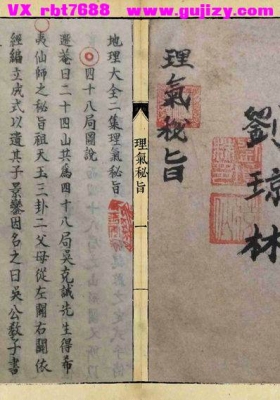 VX rbt7688 www.gujizy.com
劉琼林
理氣秘旨
理氣秘旨
一
地理大全二集理氣秘旨
四十八局圖說
遯菴曰二十四山共爲四十八局吳克誠先生得希
夷仙師之秘旨祖天玉三卦二父母從左關右關依
經編立成式以遺其子景鸞因名之曰吳公教子書